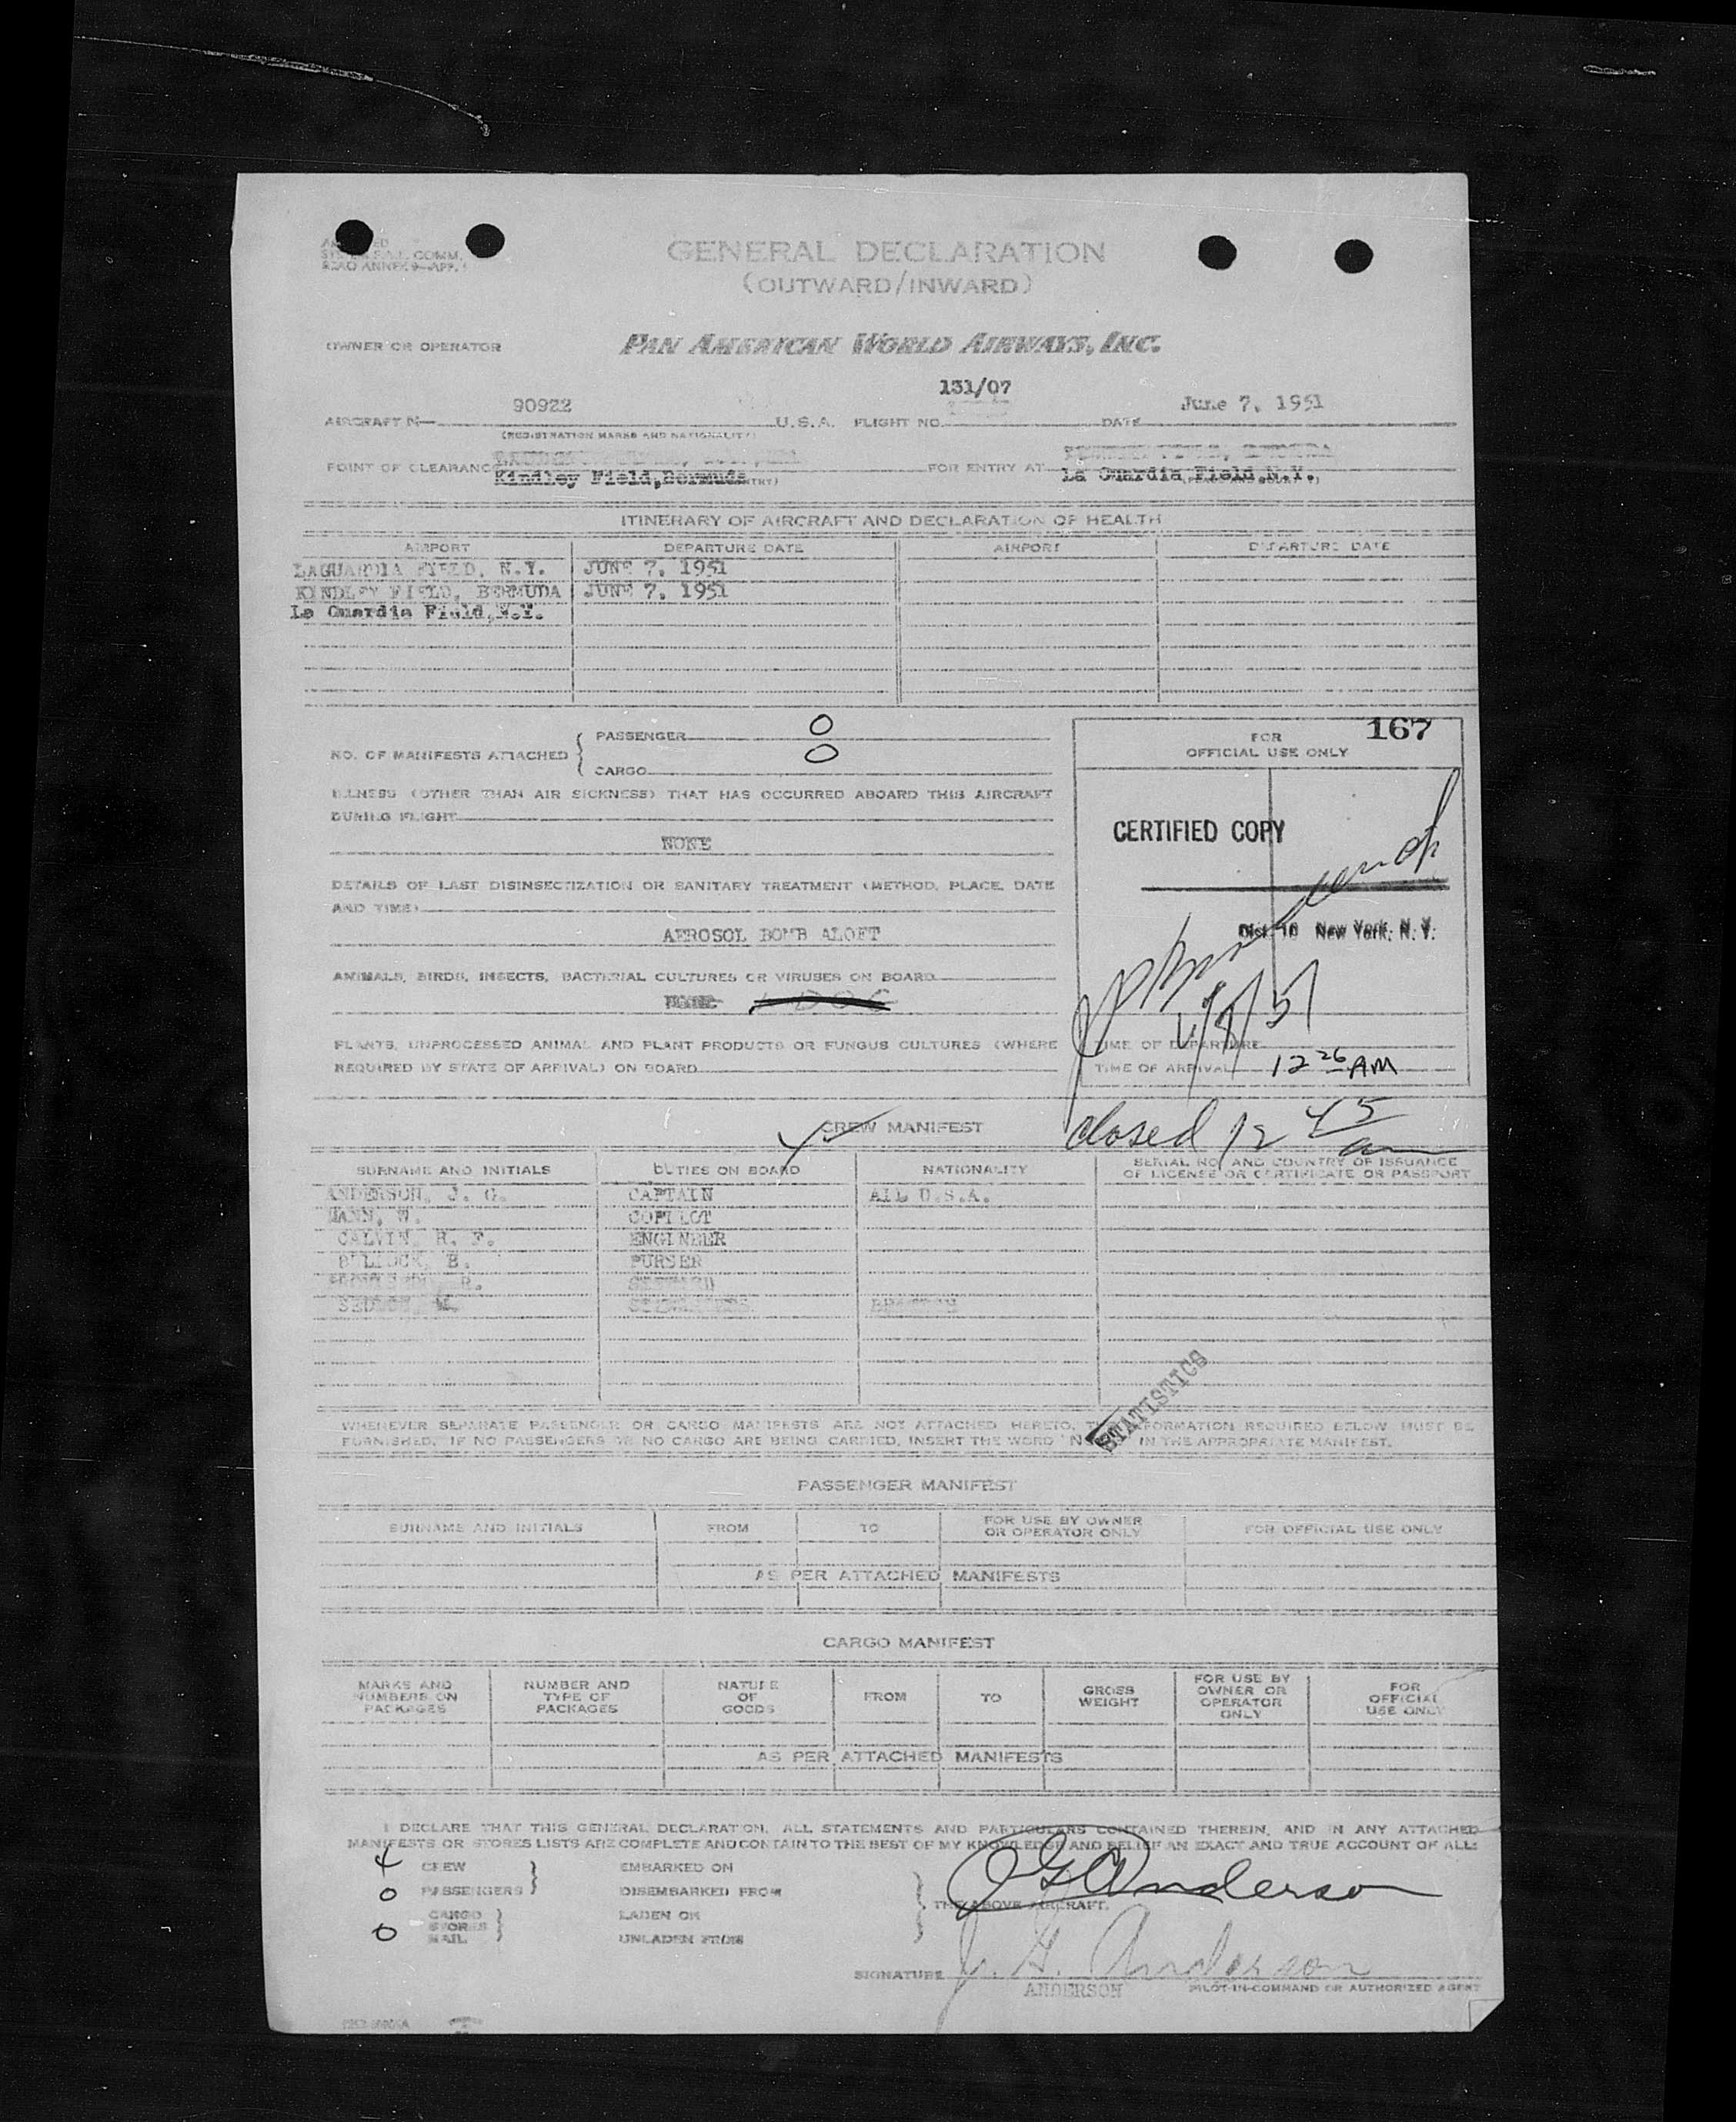 GENERAL DECLARATION
(OUTWARD/INWARD)
OWNER OR OPERATOR PAN AMERICAN WORLD AIRWAYS, INC.
131/07
AIRCRAFT N— 90922 U.S.A. FLIGHT NO. DATE June 7, 1951
(REGISTRATION MARKS AND NATIONALITY)
POINT OF CLEARANCE Kindley Field,Bermuda FOR ENTRY AT La Guardia Field,N.Y.
ITINERARY OF AIRCRAFT AND DECLARATION OF HEALTH
AIRPORT DEPARTURE DATE AIRPORT DEPARTURE DATE
LAGUARDIA FIELD, N.Y. JUNE 7, 1951
KINDLEY FIELD, BERMUDA JUNE 7, 1951
La Guardia Field,N.Y.
NO. OF MANIFESTS ATTACHED { PASSENGER 0
CARGO 0
FOR 167
OFFICIAL USE ONLY
ILLNESS (OTHER THAN AIR SICKNESS) THAT HAS OCCURRED ABOARD THIS AIRCRAFT
DURING FLIGHT
NONE
CERTIFIED COPY
DETAILS OF LAST DISINSECTIZATION OR SANITARY TREATMENT (METHOD, PLACE, DATE
AND TIME)
AEROSOL BOMB ALOFT
Dist. 10 New York, N. Y.
ANIMALS, BIRDS, INSECTS, BACTERIAL CULTURES OR VIRUSES ON BOARD
DOG
PLANTS, UNPROCESSED ANIMAL AND PLANT PRODUCTS OR FUNGUS CULTURES (WHERE
REQUIRED BY STATE OF ARRIVAL) ON BOARD
6/8/51
TIME OF DEPARTURE
TIME OF ARRIVAL 12 26 AM
closed 12 45 am
CREW MANIFEST
4
SURNAME AND INITIALS DUTIES ON BOARD NATIONALITY SERIAL NO. AND COUNTRY OF ISSUANCE
OF LICENSE OR CERTIFICATE OR PASSPORT
ANDERSON, J. G. CAPTAIN ALL U.S.A.
MANN, W. COPILOT
CALVIN, H. F. ENGINEER
BULLOCK, E. PURSER
R. STEWARD
STATISTICS
WHENEVER SEPARATE PASSENGER OR CARGO MANIFESTS ARE NOT ATTACHED HERETO, THE INFORMATION REQUIRED BELOW MUST BE
FURNISHED. IF NO PASSENGERS OR NO CARGO ARE BEING CARRIED, INSERT THE WORD IN THE APPROPRIATE MANIFEST.
PASSENGER MANIFEST
SURNAME AND INITIALS FROM TO FOR USE BY OWNER OR OPERATOR ONLY FOR OFFICIAL USE ONLY
AS PER ATTACHED MANIFESTS
CARGO MANIFEST
MARKS AND NUMBERS ON PACKAGES NUMBER AND TYPE OF PACKAGES NATURE OF GOODS FROM TO GROSS WEIGHT FOR USE BY OWNER OR OPERATOR ONLY FOR OFFICIAL USE ONLY
AS PER ATTACHED MANIFESTS
I DECLARE THAT THIS GENERAL DECLARATION, ALL STATEMENTS AND PARTICULARS CONTAINED THEREIN, AND IN ANY ATTACHED
MANIFESTS OR STORES LISTS ARE COMPLETE AND CONTAIN TO THE BEST OF MY KNOWLEDGE AND BELIEF AN EXACT AND TRUE ACCOUNT OF ALL:
4 CREW } EMBARKED ON
0 PASSENGERS DISEMBARKED FROM
CARGO LADEN ON } THE ABOVE AIRCRAFT.
0 STORES }
MAIL UNLADEN FROM
J G Anderson
SIGNATURE J. G. Anderson
ANDERSON PILOT-IN-COMMAND OR AUTHORIZED AGENT